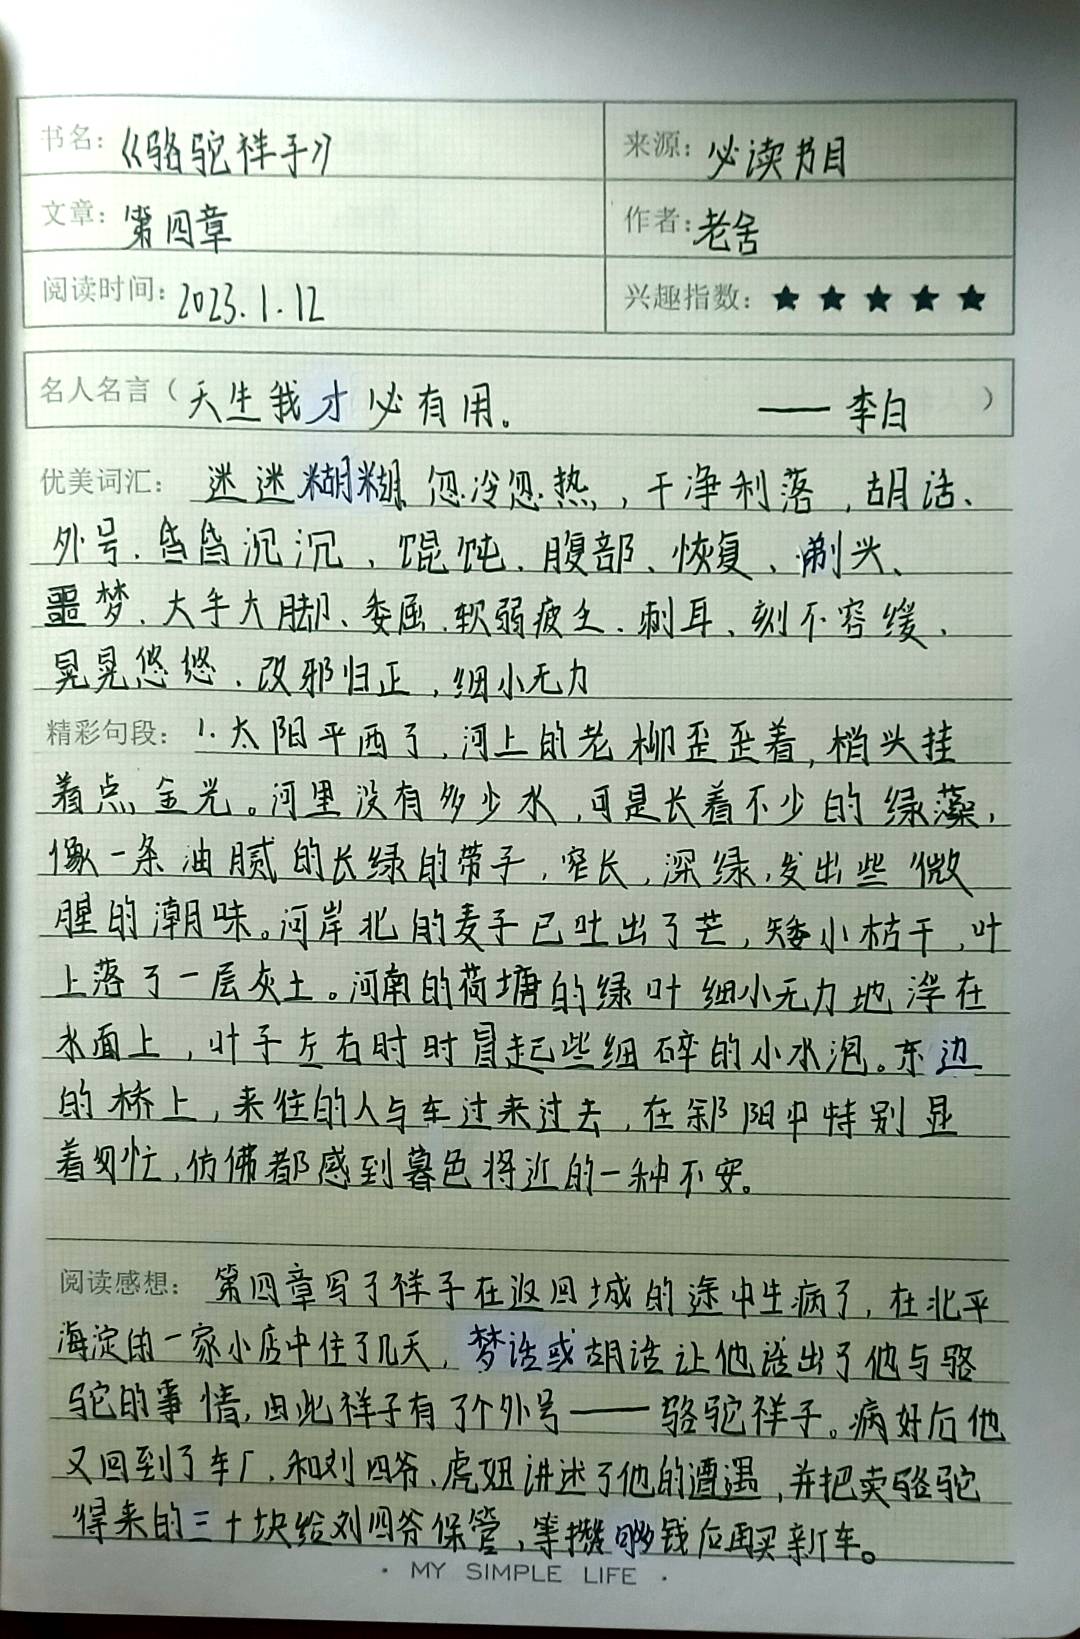 书名：《骆驼祥子》 来源：必读书目
文章：第四章 作者：老舍
阅读时间：2023.1.12 兴趣指数：★ ★ ★ ★ ★
名人名言（天生我才必有用。 ——李白 ）
优美词汇： 迷迷糊糊、忽冷忽热，干净利落，胡话、
外号、昏昏沉沉、馄饨、腹部、恢复、剃头、
噩梦、大手大脚、委屈、软弱疲乏、刺耳、刻不容缓、
晃晃悠悠、改邪归正，细小无力
精彩句段： 1.太阳平西了，河上的老柳歪歪着，梢头挂
着点金光。河里没有多少水，可是长着不少的绿藻，
像一条油腻的长绿的带子，窄长，深绿，发出些微
腥的潮味。河岸北的麦子已吐出了芒，矮小枯干，叶
上落了一层灰土。河南的荷塘的绿叶细小无力地浮在
水面上，叶子左右时时冒起些细碎的小水泡。东边
的桥上，来往的人与车过来过去，在斜阳中特别显
着匆忙，仿佛都感到暮色将近的一种不安。
阅读感想： 第四章写了祥子在返回城的途中生病了，在北平
海淀的一家小店中住了几天，梦话或胡话让他说出了他与骆
驼的事情，由此祥子有了个外号——骆驼祥子。病好后他
又回到了车厂，和刘四爷、虎妞讲述了他的遭遇，并把卖骆驼
得来的三十块给刘四爷保管，等攒够钱后再买新车。
· MY SIMPLE LIFE ·